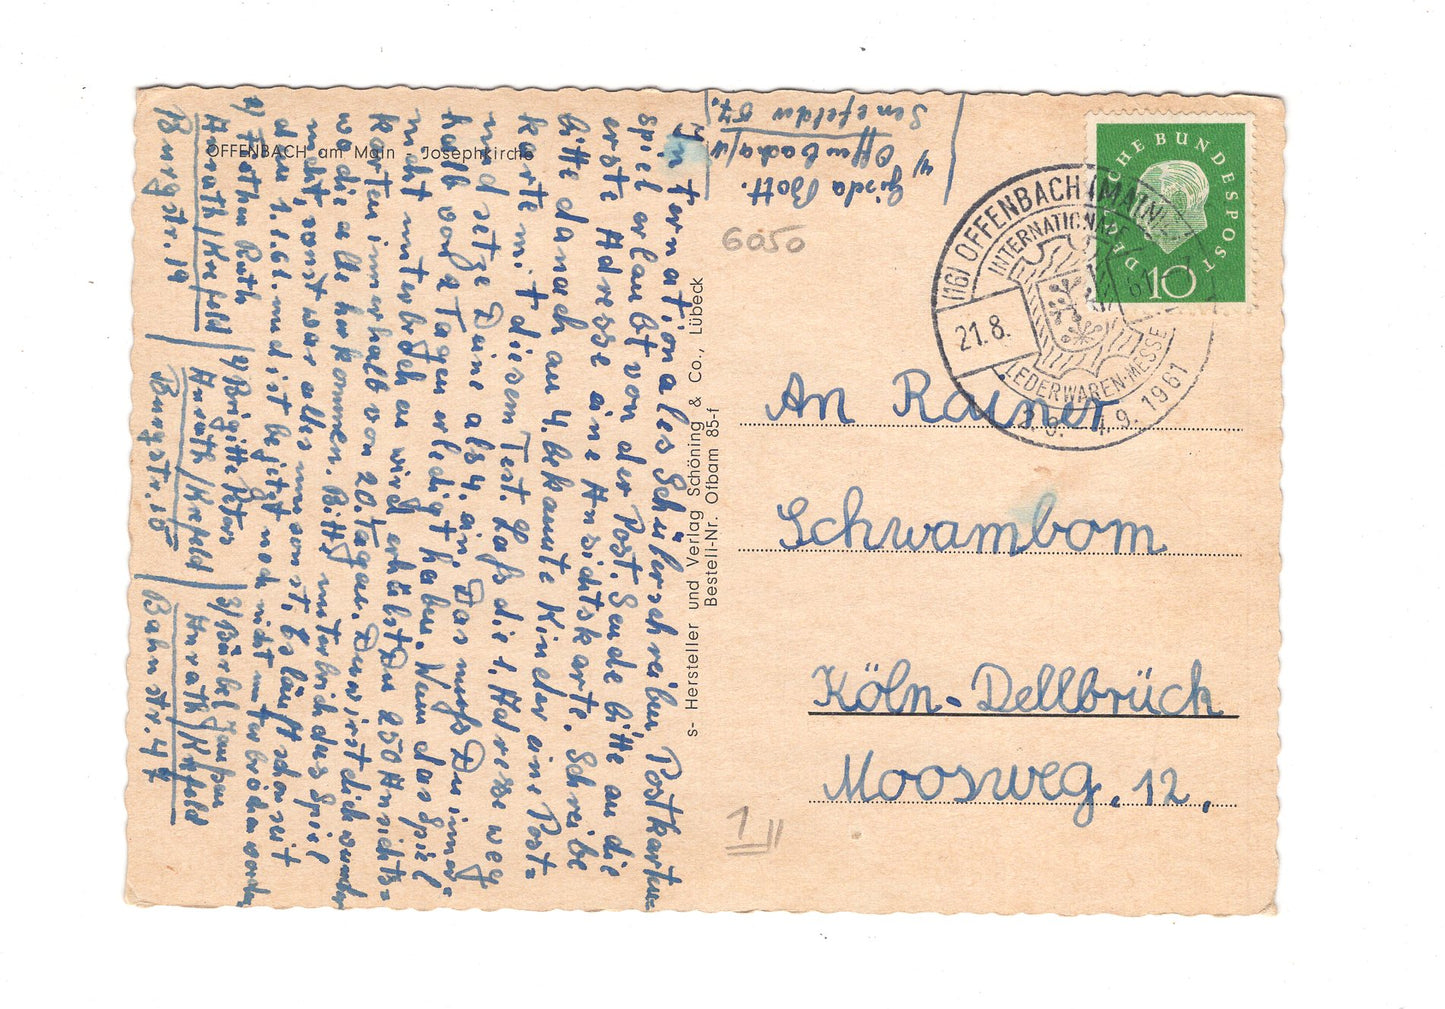 OFFENBACH am Main Josephkirche
Internationales Schülerschreiben Postkarten-
spiel erlaubt von der Post. Sende bitte an die
erste Adresse eine Ansichtskarte. Schreibe
bitte danach an 4 bekannte Kinder eine Post-
karte mit diesem Text. Laß die 1. Adresse weg
und setze Deine als 4. ein. Das mußt Du inner-
halb von 2 Tagen erledigt haben. Wenn das Spiel
nicht unterbrochen wird erhältst Du 250 Ansichts-
karten innerhalb von 20 Tagen. Du wirst dich wundern
wo die alle herkommen. Bitte unterbrich das Spiel
nicht, sonst war alles umsonst. Es läuft schon seit
dem 1.1.61 und ist bis jetzt noch nicht unterbrochen worden.
1/ Ruth
Anrath/Krefeld
Burgstr. 19
2/ Brigitte Peters
Anrath/Krefeld
Burgstr. 10
3/ Bärbel
Anrath/Krefeld
Bahnstr. 47
4/ Gisela Bott.
Offenbach a/M
Senefelder 57.
s- Hersteller und Verlag Schöning & Co., Lübeck
Bestell-Nr. Ofbam 85-f
6050
(16) OFFENBACH (MAIN)
INTERNATIONALE
LEDERWAREN-MESSE
21.8.
1961
DEUTSCHE BUNDESPOST
10
An Rainer
Schwambom
Köln-Dellbrück
Moosweg. 12.
1 II